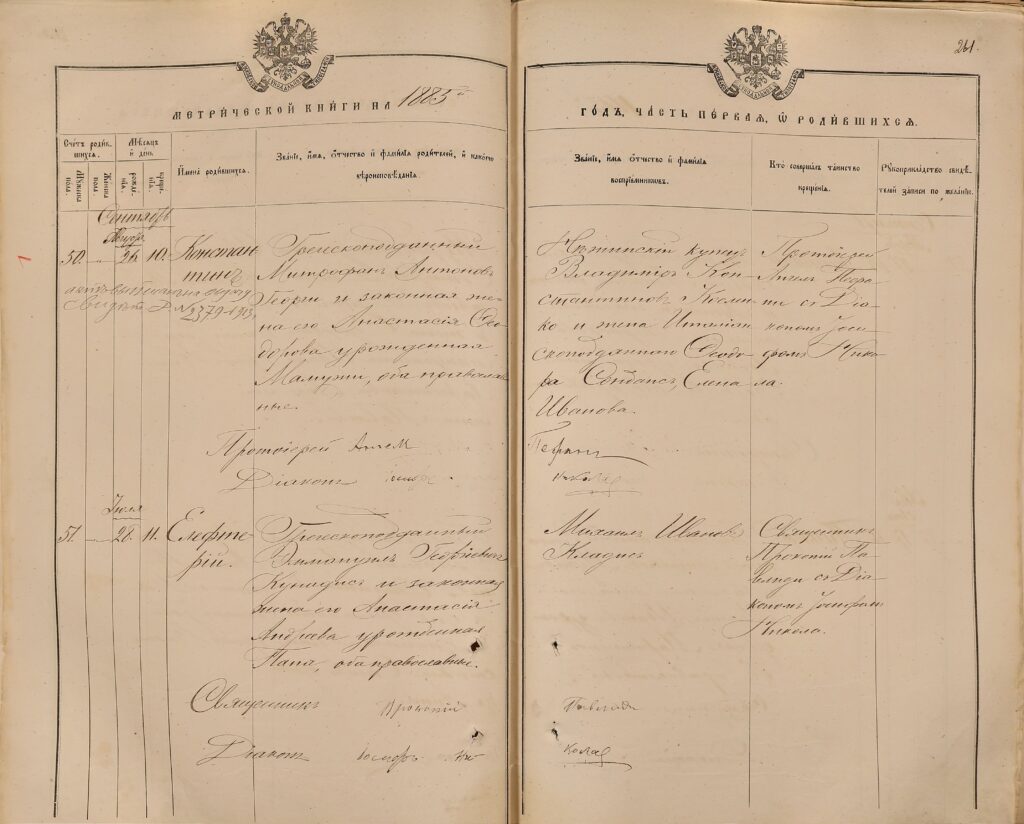 261.
МЕТРИЧЕСКОЙ КНИГИ НА 1885й
ГОДЪ, ЧАСТЬ ПЕРВАЯ, Ѡ РОДИВШИХСЯ.
Счетъ родившихся.
Мужска пола.
Женска пола.
Мѣсяцъ и день.
рожденія.
крещенія.
Имена родившихся.
Званіе, имя, отчество и фамилія родителей, и какого вѣроисповѣданія.
Званіе, имя, отчество и фамилія воспріемниковъ.
Кто совершалъ таинство крещенія.
Рукоприкладство свидѣтелей записи по желанію.
Сентябрь
Август
50. „ 26 10. Констан
тинъ
Грекоподданный
Митрофанъ Антоновъ
Георги и законная же-
на его Анастасія Ѳео-
дорова урожденная
Мамузи, оба православ-
ные.
№ 2379-1913
Нѣжинскій купец
Владиміръ Кон-
стантиновъ
ко и жена Италіан-
скоподданного Ѳеодо-
ра Елена
Иванова.
Протоіерей
съ Діа-
кономъ Іоси-
фомъ Нико-
ла.
Протоіерей
Діаконъ
Іюля
51. „ 28. 11. Елефте-
рій.
Грекоподданный
Эммануилъ Георгіевъ
Кунадисъ и законная
жена его Анастасія
Андреева урожденная
Папа, оба православные.
Михаилъ Ивановъ
Кладисъ
Священникъ
Прокопій Па-
влиди съ Діа-
кономъ Іосифомъ
Никола.
Священникъ Прокопій Павлиди
Діаконъ Іосифъ Николая